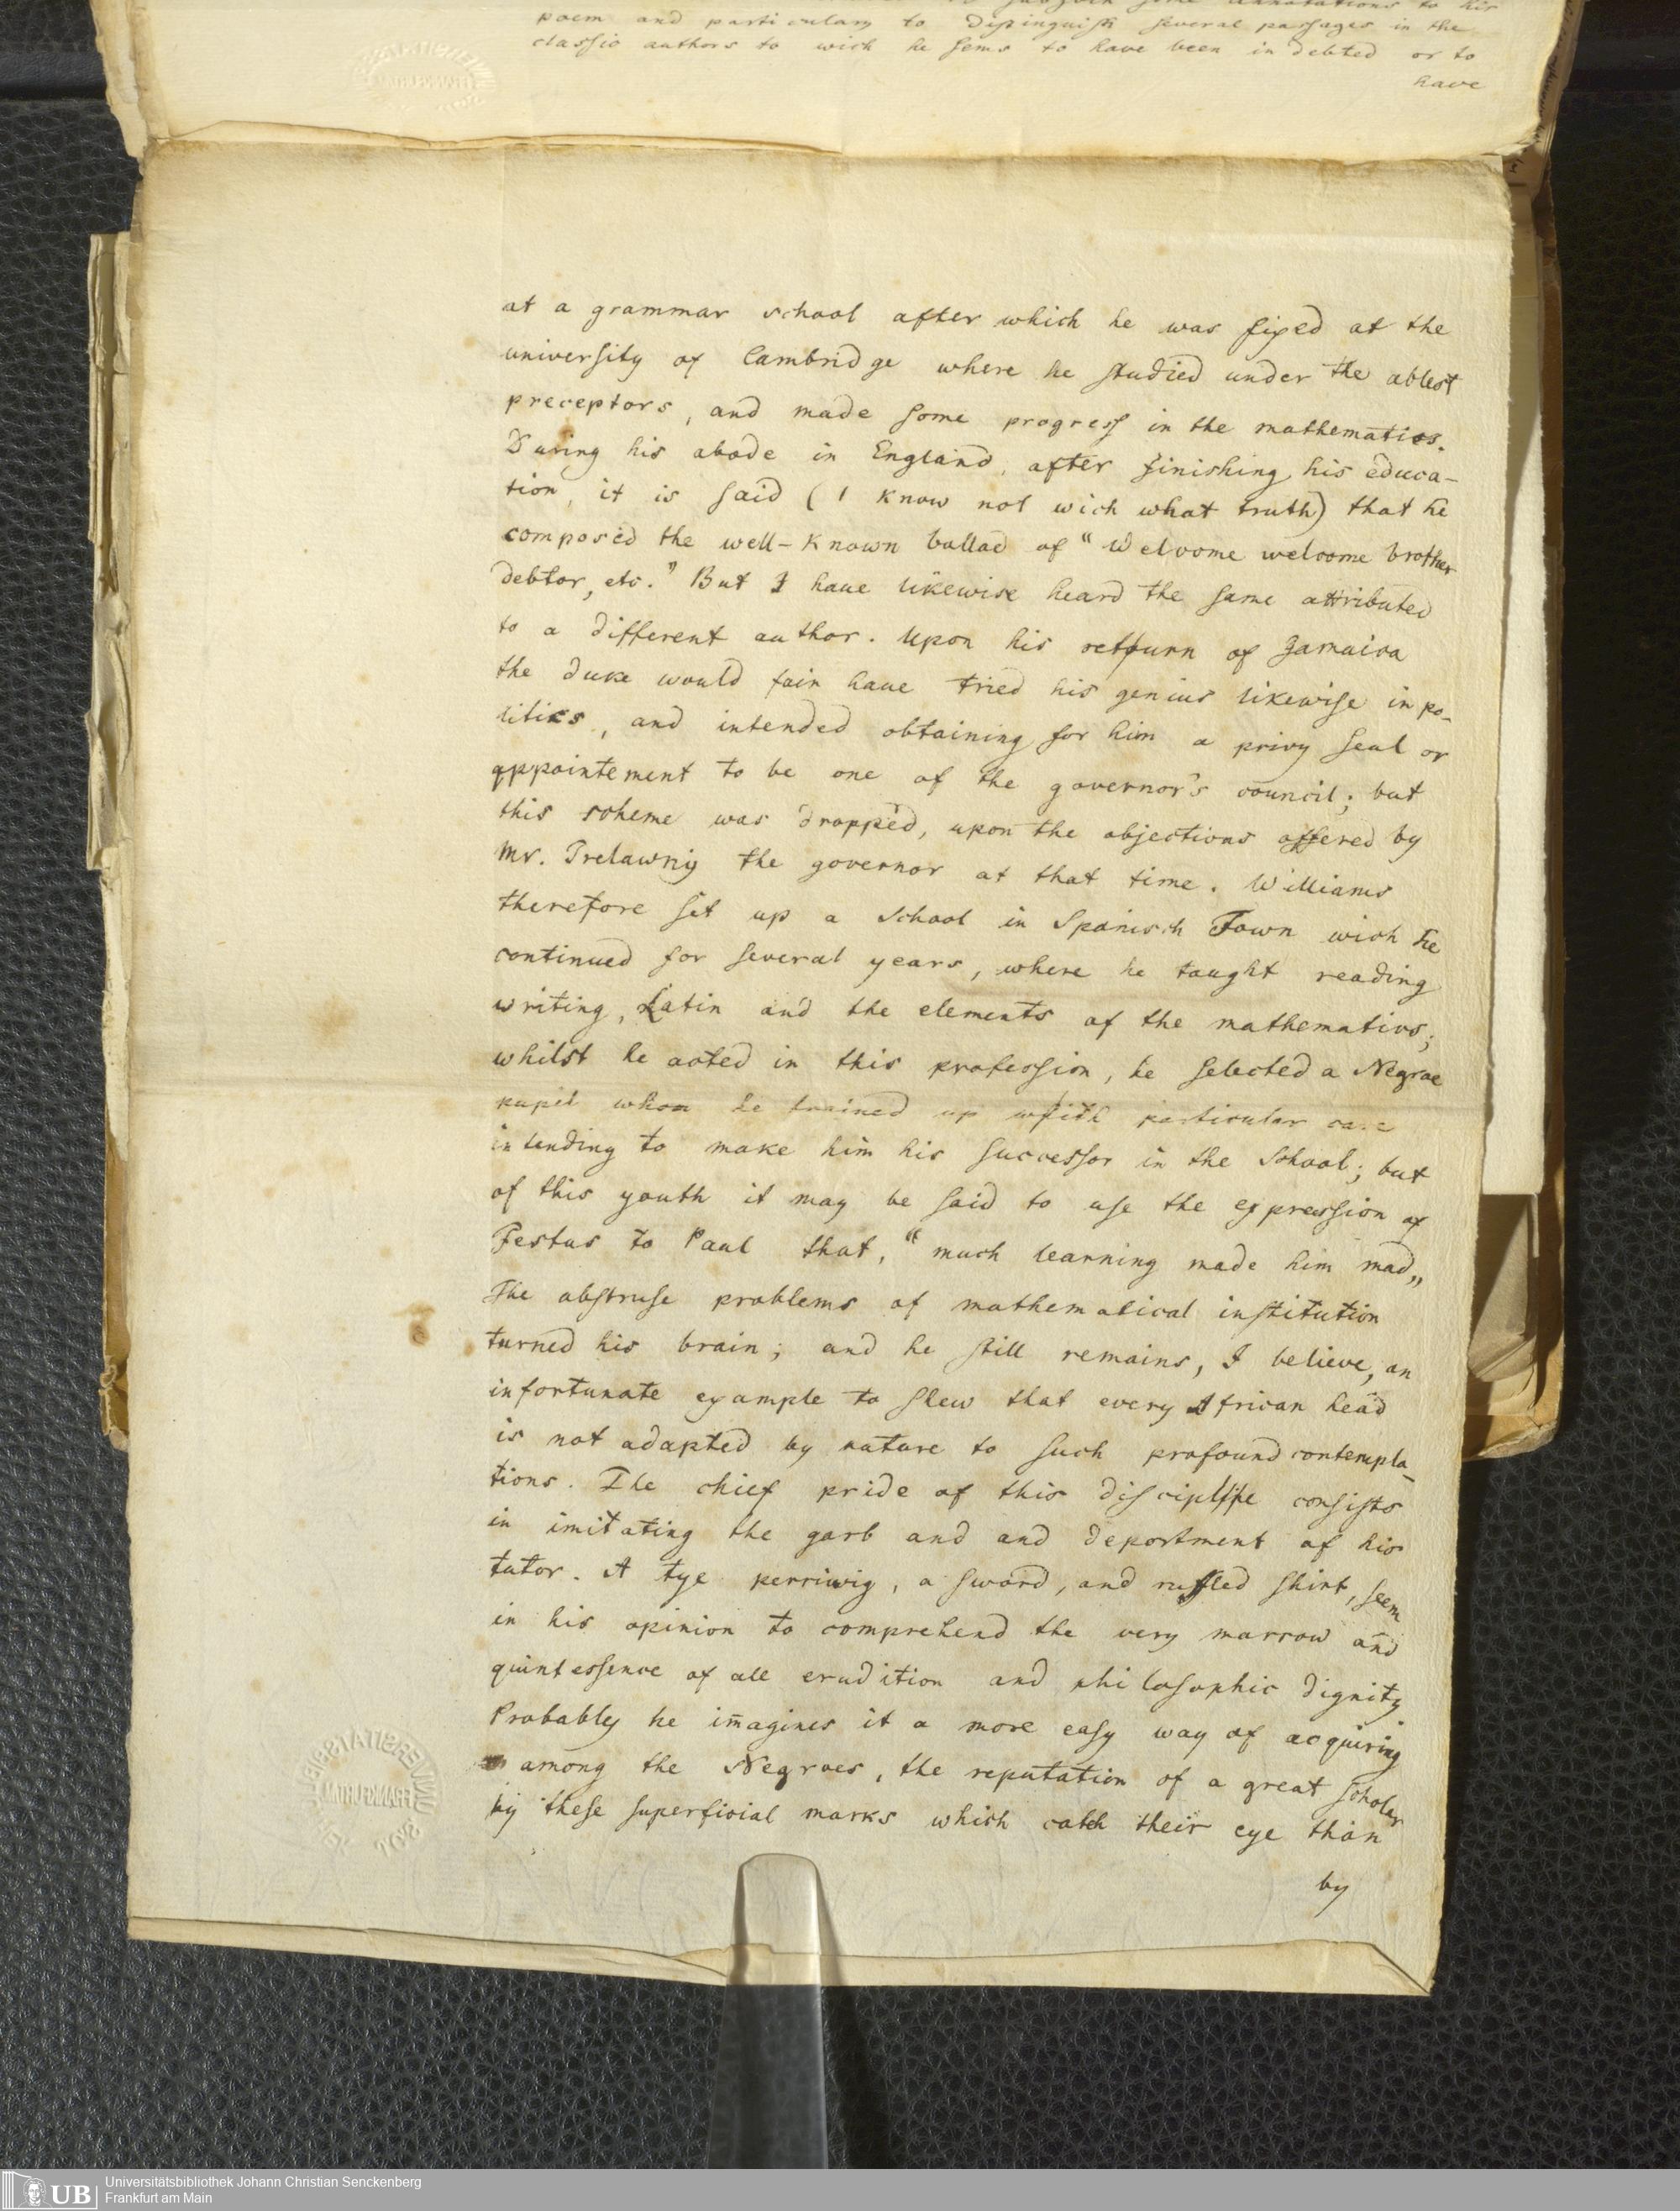 poem and particulary to distinguish several passages in the
classic authors to wich he sems to have been in debted or to
have
at a grammar school after which he was fixed at the
university of Cambridge where he studied under the ablest
preceptors, and made some progress in the mathematics.
During his abode in England, after finishing his educa-
tion, it is said (I know not wich what truth) that he
composed the well-known ballad of "Welcome welcome brother
debtor, etc." But I haue likewise heard the same attributed
to a different author. Upon his return of Jamaica
the duke would fain haue tried his genius likewise in po-
litiks, and intended obtaining for him a privy seal or
appointement to be one of the governor's council; but
this scheme was dropped, upon the objections offered by
Mr. Trelawny the governor at that time. Williams
therefore set up a school in Spanisch Town wich he
continued for several years, where he taught reading
writing, Latin and the elements of the mathematics;
whilst he acted in this profession, he selected a Negroe
pupil whom he trained up with particular care
intending to make him his successor in the school; but
of this youth it may be said to use the expression of
Festus to Paul that, "much learning made him mad„
The abstruse problems of mathematical institution
turned his brain; and he still remains, I believe, an
infortunate example to shew that every African head
is not adapted by nature to such profound contempla-
tions. The chief pride of this disciple consists
in imitating the garb and and deportment of his
tutor. A tye perriwig, a sword, and ruffled shirt, seem
in his opinion to comprehend the very marrow and
quintessence of all erudition and philosophic dignity
Probably he imagines it a more easy way of acquiring
among the Negroes, the reputation of a great scholar
by these superficial marks which catch their eye than
by
UB
Universitätsbibliothek Johann Christian Senckenberg
Frankfurt am Main